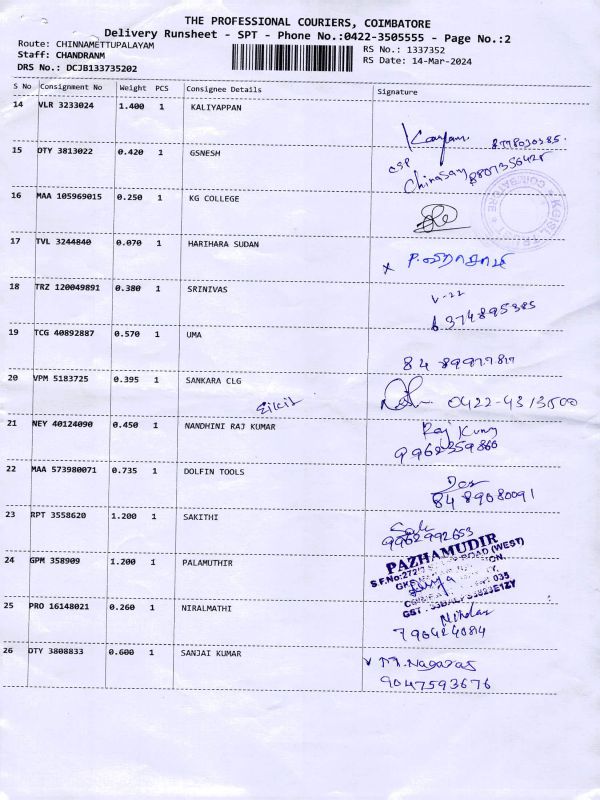 THE PROFESSIONAL COURIERS, COIMBATORE
Delivery Runsheet - SPT - Phone No.:0422-3505555 - Page No.:2
Route: CHINNAMETTUPALAYAM RS No.: 1337352
Staff: CHANDRANM RS Date: 14-Mar-2024
DRS No.: DCJB133735202
S No Consignment No Weight PCS Consignee Details Signature
14 VLR 3233024 1.400 1 KALIYAPPAN
15 OTY 3813022 0.420 1 GSNESH
16 MAA 105969015 0.250 1 KG COLLEGE
17 TVL 3244840 0.070 1 HARIHARA SUDAN
18 TRZ 120049891 0.380 1 SRINIVAS
V-22
6374895385
19 TCG 40892887 0.570 1 UMA
20 VPM 5183725 0.395 1 SANKARA CLG 0422-4313500
21 NEY 40124090 0.450 1 NANDHINI RAJ KUMAR Raj Kumar
9962359860
22 MAA 573980071 0.735 1 DOLFIN TOOLS
8489080091
23 RPT 3558620 1.200 1 SAKITHI
9962992653
24 GPM 358909 1.200 1 PALAMUTHIR PAZHAMUDIR
25 PRO 16148021 0.260 1 NIRALMATHI
7904240814
26 OTY 3808833 0.600 1 SANJAI KUMAR M. Nagaraj
9047593676